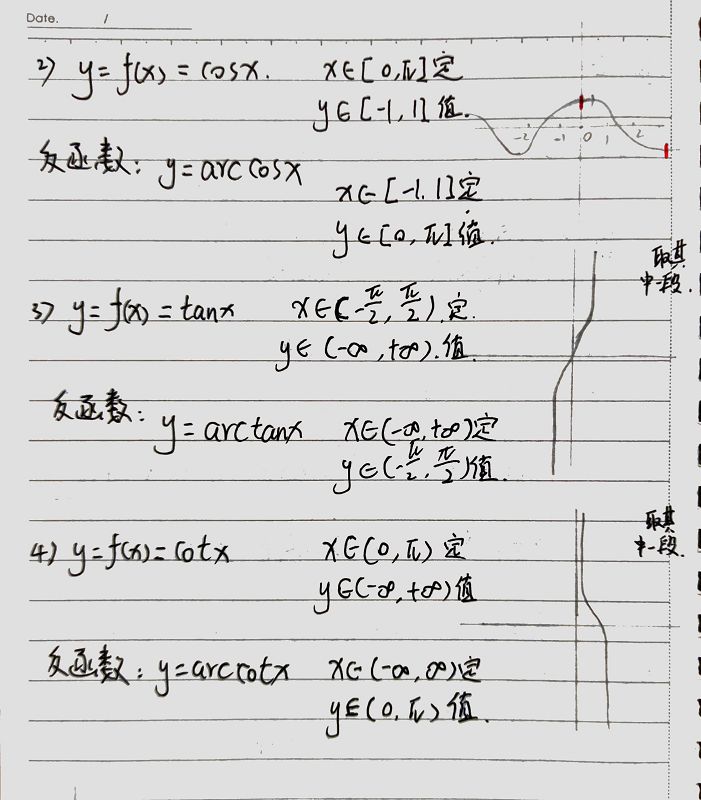 Date. /
2) y = f(x) = cosx. x∈[0,π]定
y∈[-1,1]值.
1
-2 -1 0 1 2
反函数: y = arccosx
x∈[-1.1]定
y∈[0,π]值.
取其
中一段.
3) y = f(x) = tanx x∈(-π/2, π/2).定.
y∈(-∞,+∞).值.
反函数: y = arctanx x∈(-∞,+∞)定
y∈(-π/2, π/2)值.
取其
中一段.
4) y = f(x) = cotx x∈(0,π)定
y∈(-∞,+∞)值
反函数: y = arccotx x∈(-∞,∞)定
y∈(0,π)值.